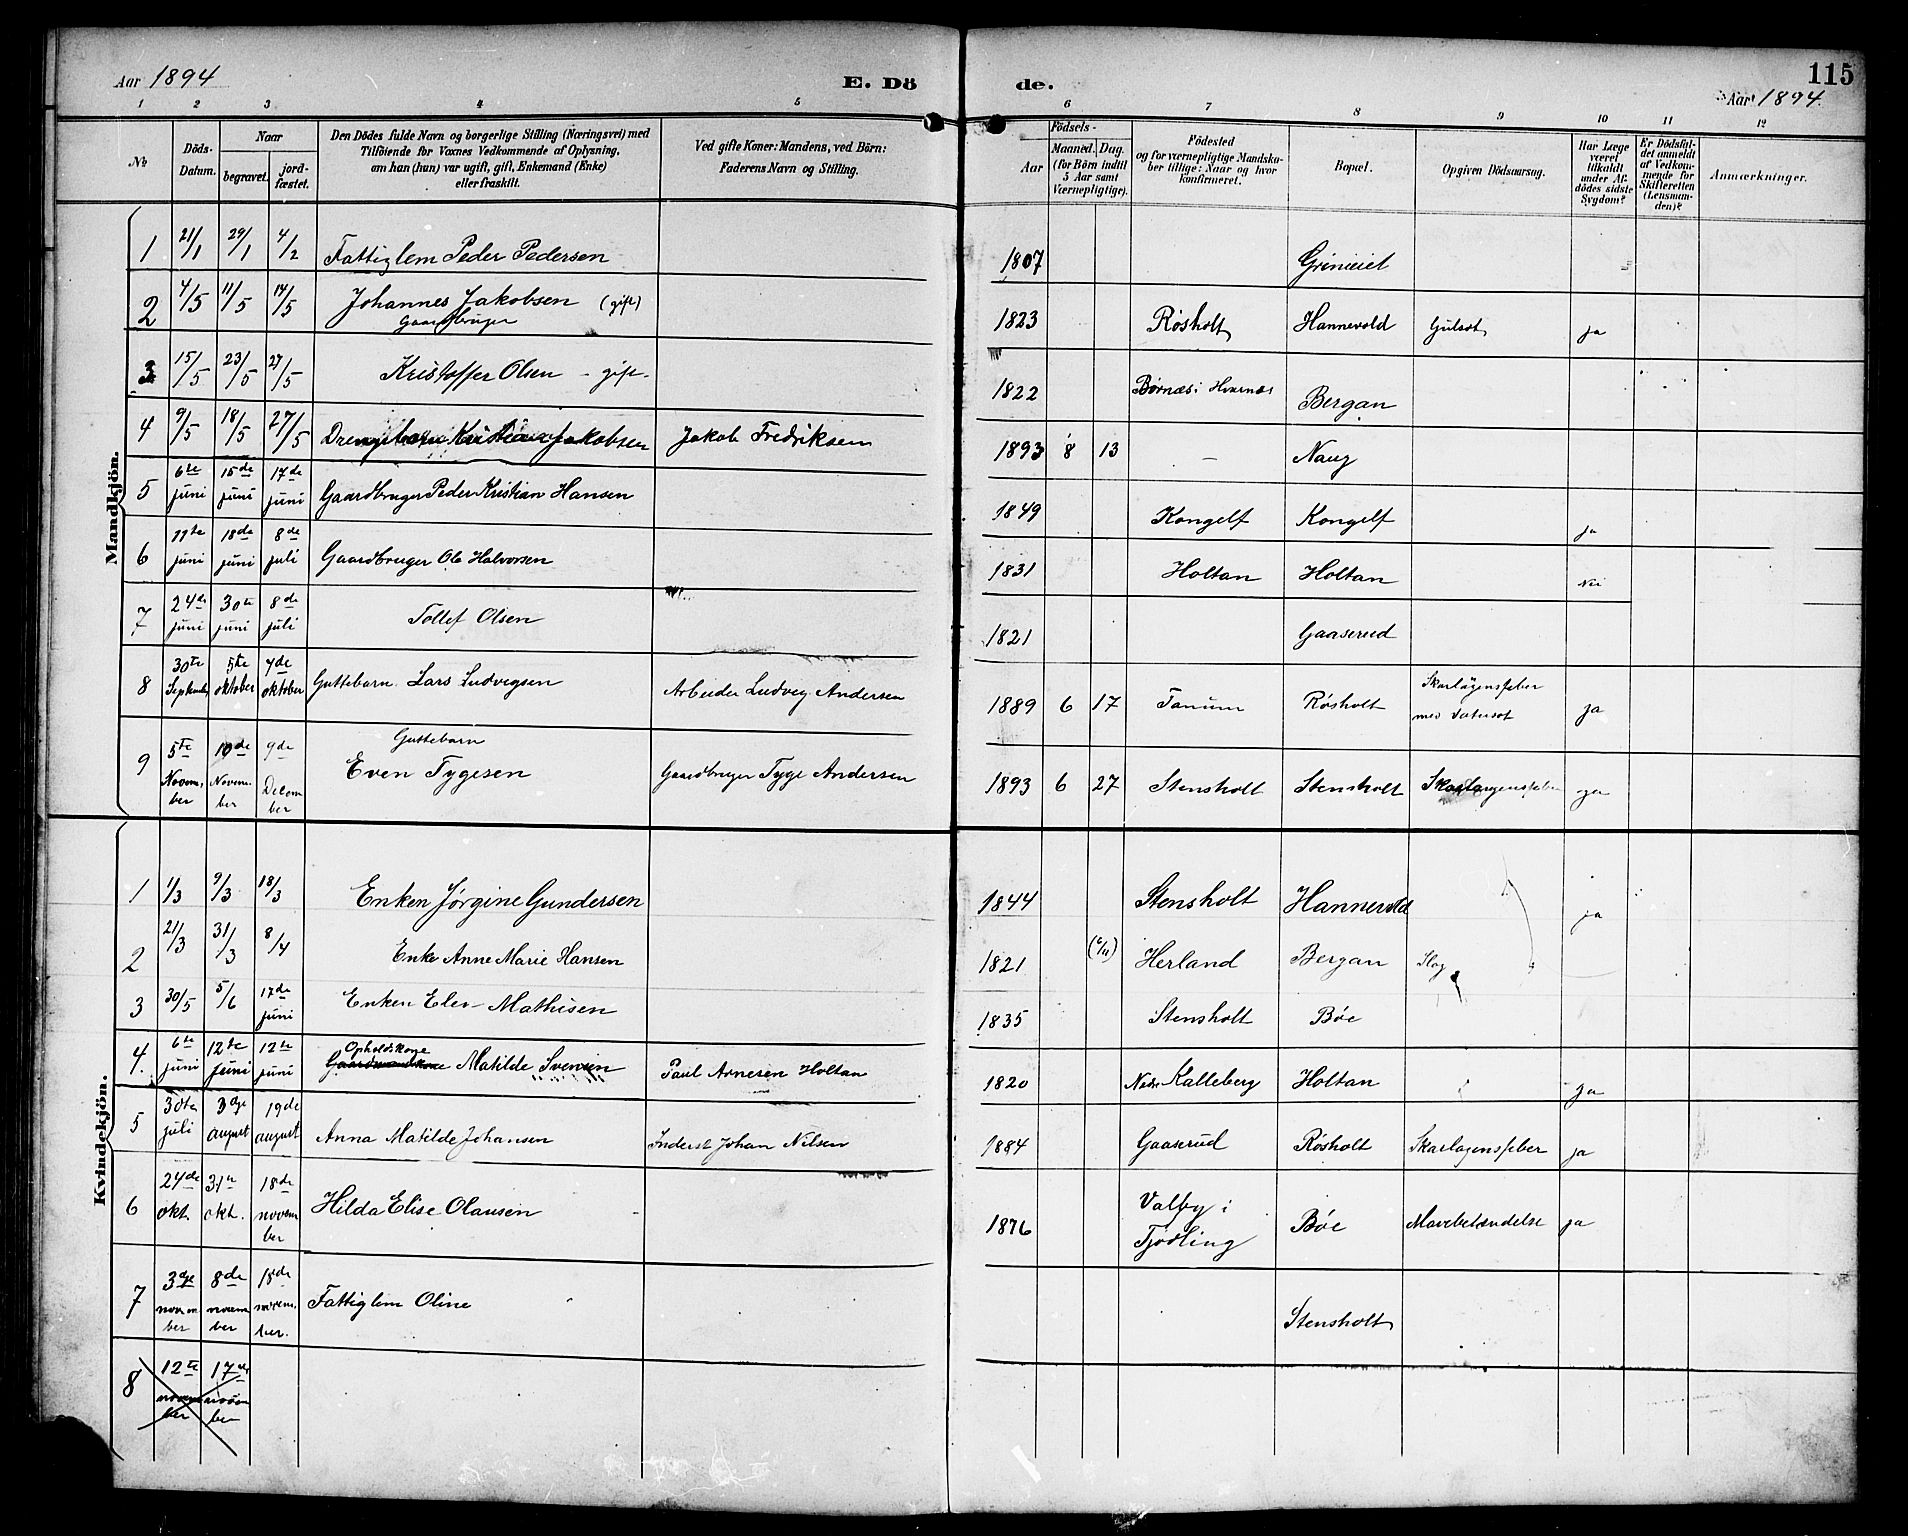 Aar 1894 E. Dö de. 115
Aar 1894.
1 2 3 4 5 6 7 8 9 10 11 12
No
Döds-Datum.
Naar begravet. jordfæstet.
Den Dödes fulde Navn og borgerlige Stilling (Næringsvei) med
Tilföiende for Voxnes Vedkommende af Oplysning,
om han (hun) var ugift, gift, Enkemand (Enke)
eller fraskilt.
Ved gifte Koner: Mandens, ved Börn:
Faderens Navn og Stilling.
Födsels-
Aar Maaned. Dag.
(for Börn indtil
5 Aar samt
Værnepligtige).
Födested
og for værnepligtige Mandska-
ber tillige: Naar og hvor
konfirmeret.
Bopæl.
Opgiven Dödsaarsag.
Har Læge
været
tilkaldt
under Af-
dödes sidste
Sygdom?
Er Dödsfal-
det anmeldt
af Vedkom-
mende for
Skifteretten
(Lensman-
den)?
Anmærkninger.
Mandkjön.
1 21/1 29/1 4/2 Fattiglem Peder Pedersen 1807
2 4/5 11/5 14/5 Johannes Jakobsen (gift) 1823 Røsholt Hannevold Gulsot ja
Gaardbruger
3 15/5 23/5 27/5 Kristoffer Olsen - gift. 1822 Bergan
4 9/5 18/5 27/5 Drengebarn Kristian Jakobsen Jakob Fredriksen 1893 8 13 — Naug
5 6te juni 15de juni 17de juni Gaardbruger Peder Kristian Hansen 1849 Kongelf Kongelf ja
6 11te juni 18de juni 8de juli Gaardbruger Ole Halvorsen 1831 Holtan Holtan Nei
7 24de juni 30te juni 8de juli Tollef Olsen 1821 Gaaserud
8 30te September 5te oktober 7de oktober Guttebarn Lars Ludvigsen Arbeider Ludvig Andersen 1889 6 17 Tanum Røsholt Skarlagensfeber
med Vatersot ja
9 5te November 10de November 9de December Guttebarn
Even Tygesen Gaardbruger Tyge Andersen 1893 6 27 Stensholt Stensholt Skarlagensfeber ja
Kvindekjön.
1 1/3 9/3 18/3 Enken Jørgine Gundersen 1844 Stensholt Hannevold ja
2 21/3 31/3 8/4 Enke Anne Marie Hansen 1821 Herland Bergan Slag
3 30/5 5/6 17de juni Enken Elev Mathisen 1835 Stensholt Bøe
4 6te juni 12te juni 12te juni Opholdskone
Gaardmandskone Matilde Svensen Paul Arnesen Holtan 1820 Nedr Kalleberg Holtan ja
5 30te juli 3dje august 19de august Anna Matilde Johansen Inderst Johan Nilsen 1884 Gaaserud Røsholt Skarlagensfeber ja
6 24de okt. 31te okt. 18de november Hilda Elise Olausen 1876 Valby i
Tjødling Bøe Mavebetændelse ja
7 3dje november 8de november 18de november. Fattiglem Oline Stensholt
8 12te november 17de november